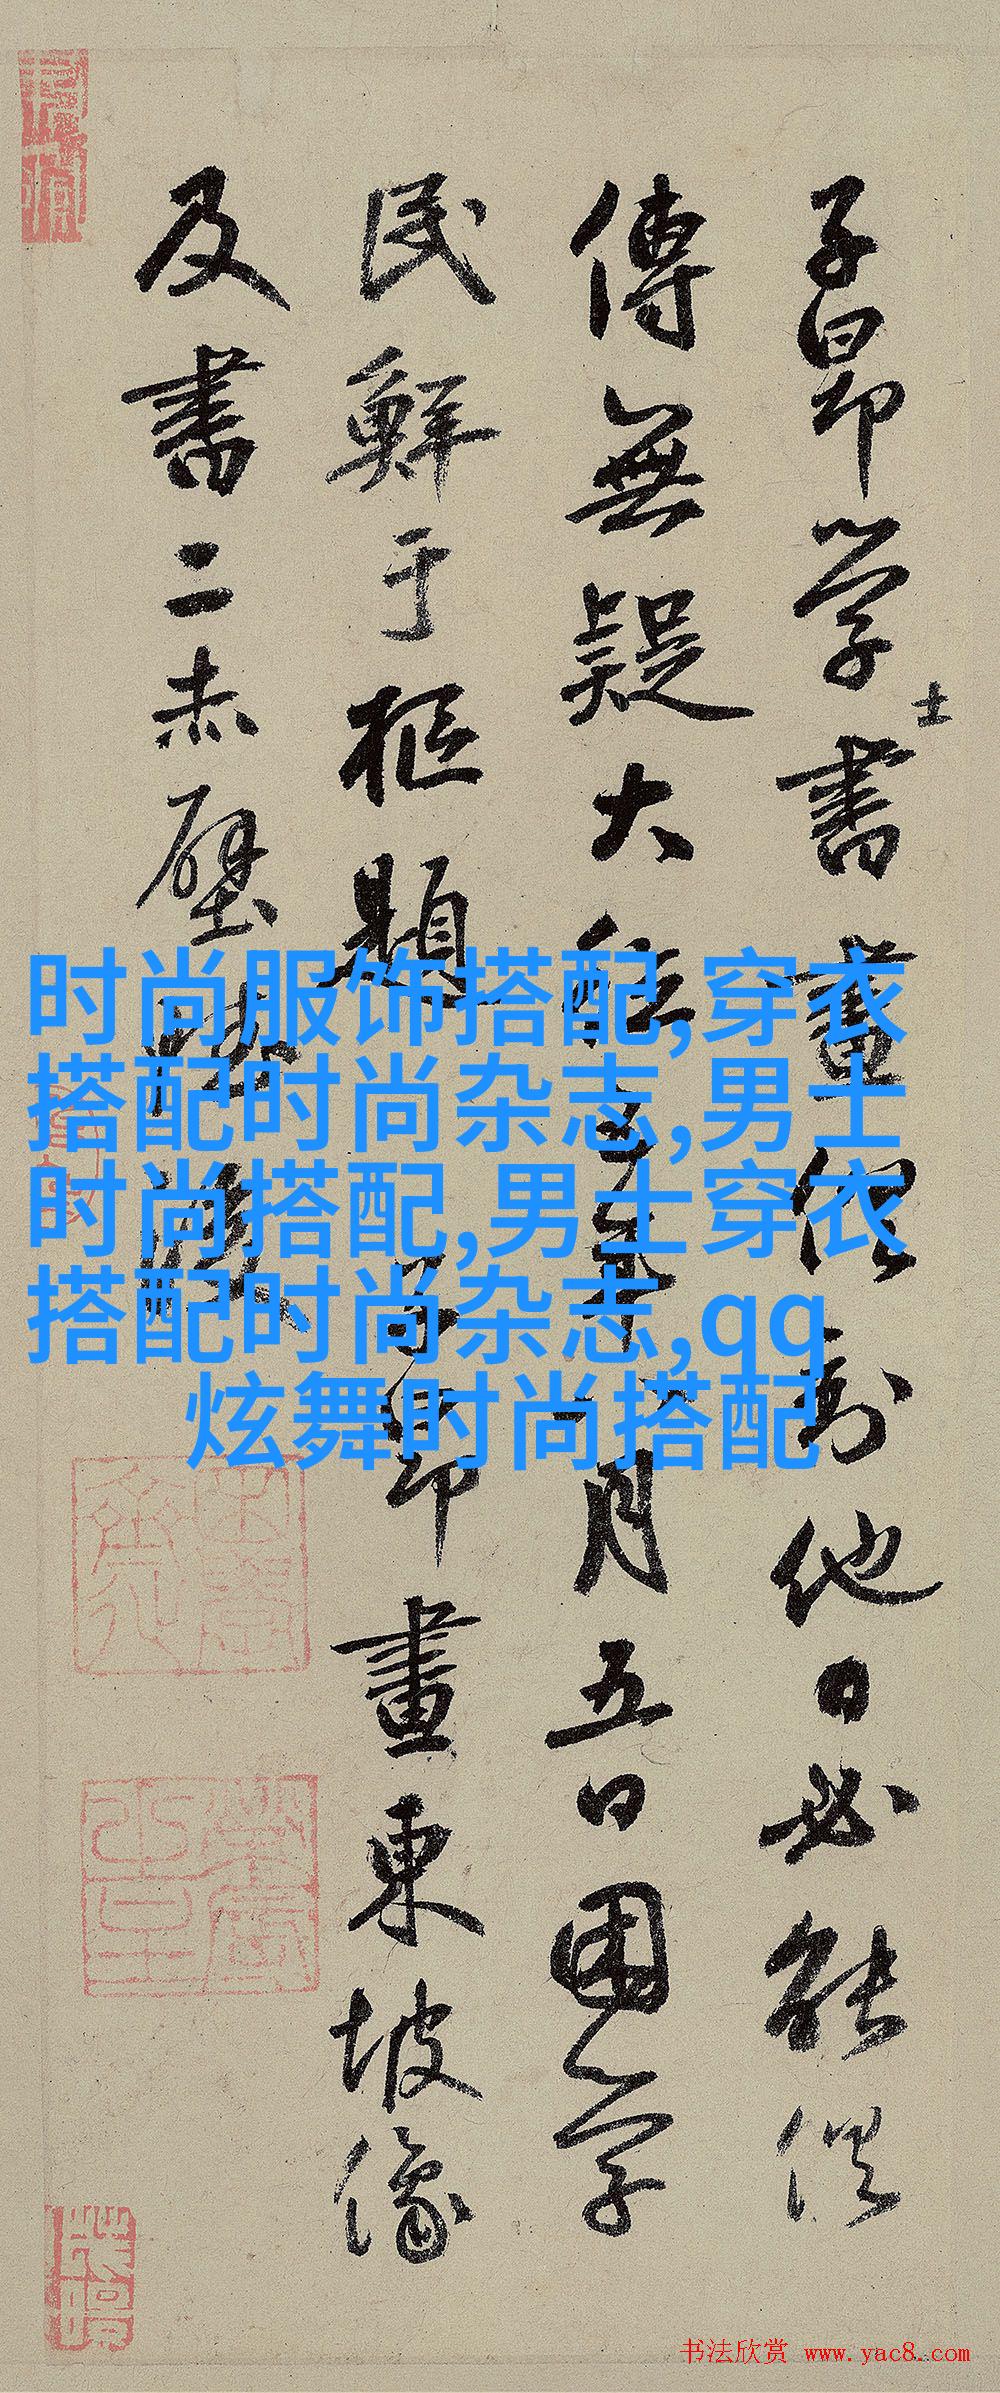 子昂学士書畫俱到他日必能俱
傳無疑大德五年月五日困学
民鮮于樞題
子昂畫東坡像
及書二赤壁
时尚服饰搭配,穿衣
搭配时尚杂志,男士
时尚搭配,男士穿衣
搭配时尚杂志,qq
炫舞时尚搭配
书法欣赏 www.yac8.com